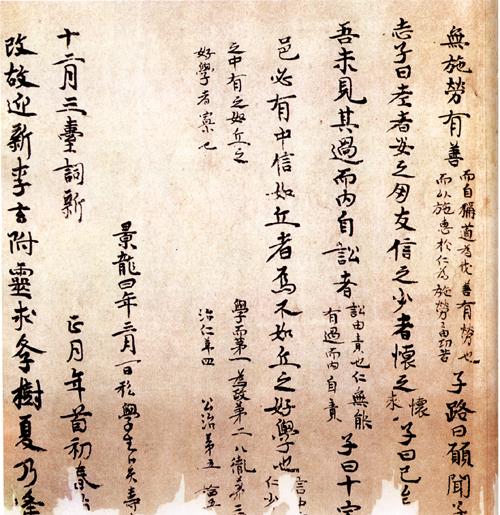 無施勞有善
而自稱道為伐善有勞也
而以施惠於仁為施勞
子路曰願聞子
志子曰老者安之朋友信之少者懷之
懷
求
子曰已
吾未見其過而內自訟者
訟由責也仁無能
有過而內自責
子曰十室
邑必有中信如丘者焉不如丘之好學也
言中
仁少
之中有之如丘之
好學者寡也
學而第一 為政第二 八佾第三
治仁第四 公治第五
景龍四年三月一日私學生卜天壽
十二月三臺詞新 正月年首初春
改故迎新李玄附靈求學樹夏乃逢